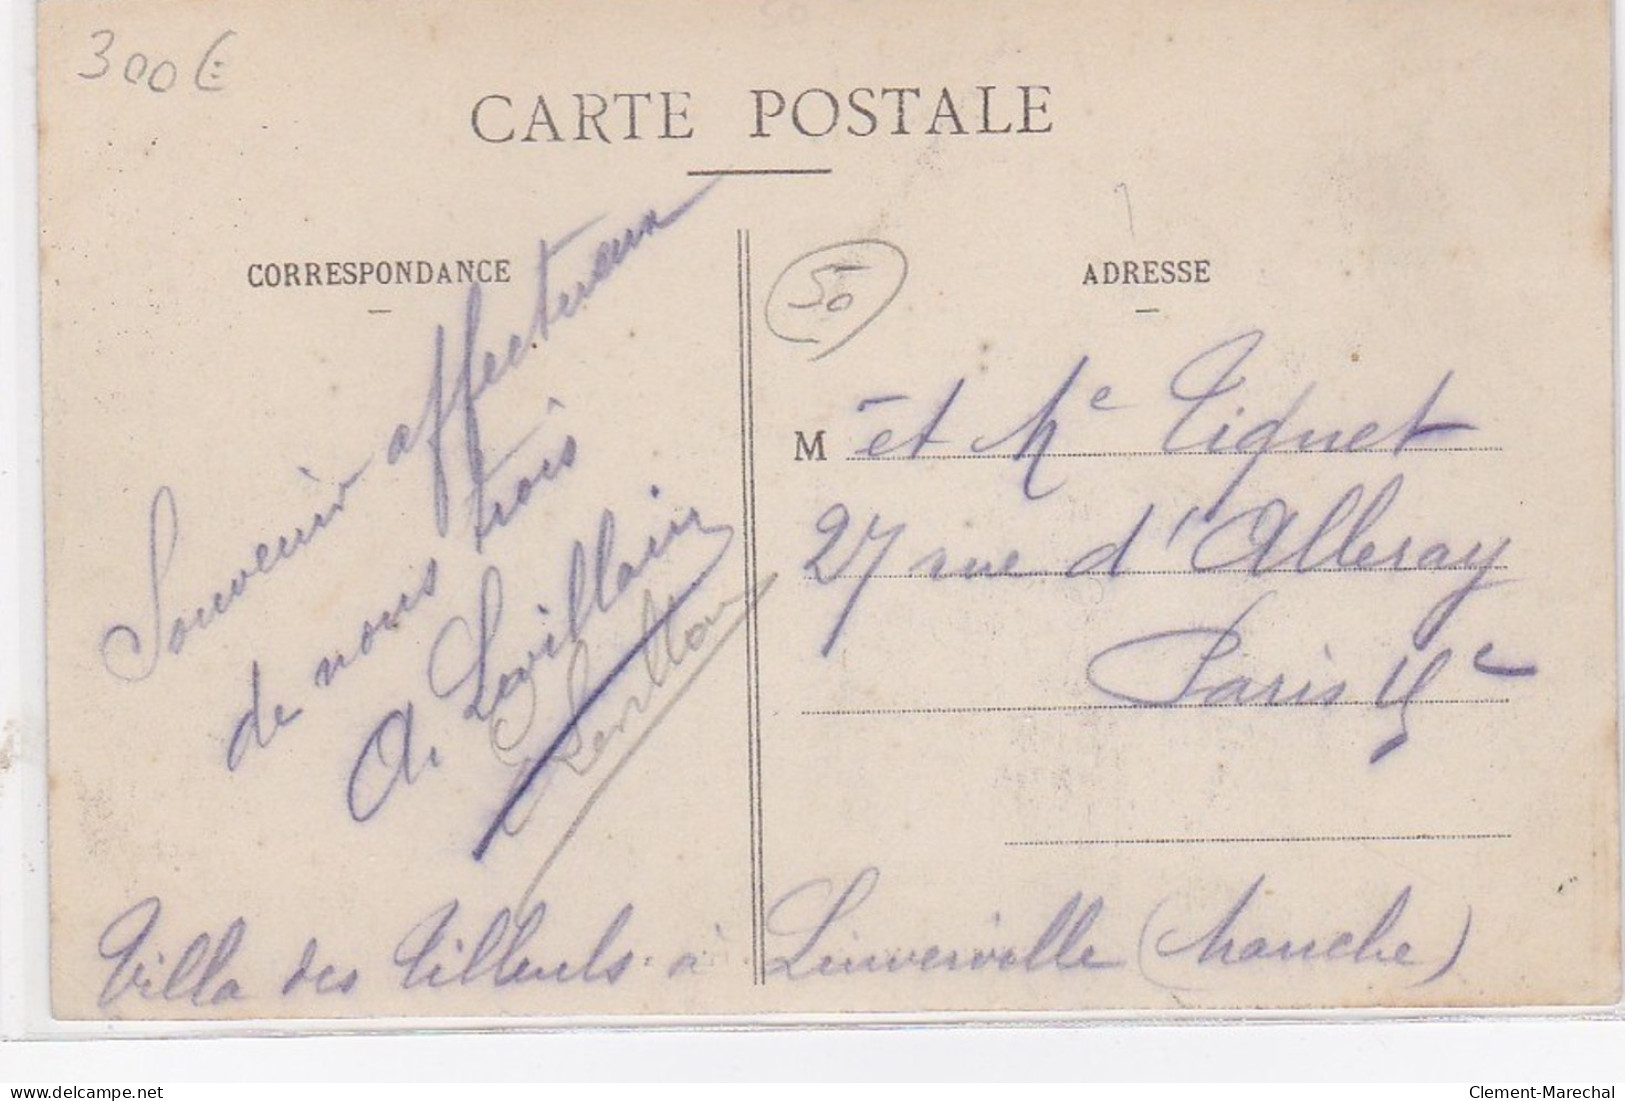 300€
CARTE POSTALE
CORRESPONDANCE
ADRESSE
50
Souvenir affectueux
de nous trois
A. Lavillain
M et Me Tiquet
27 rue d'Alleray
Paris 15e
Villa des Tilleuls à Linverville (Manche)
delcampe.net
Clement-Marechal